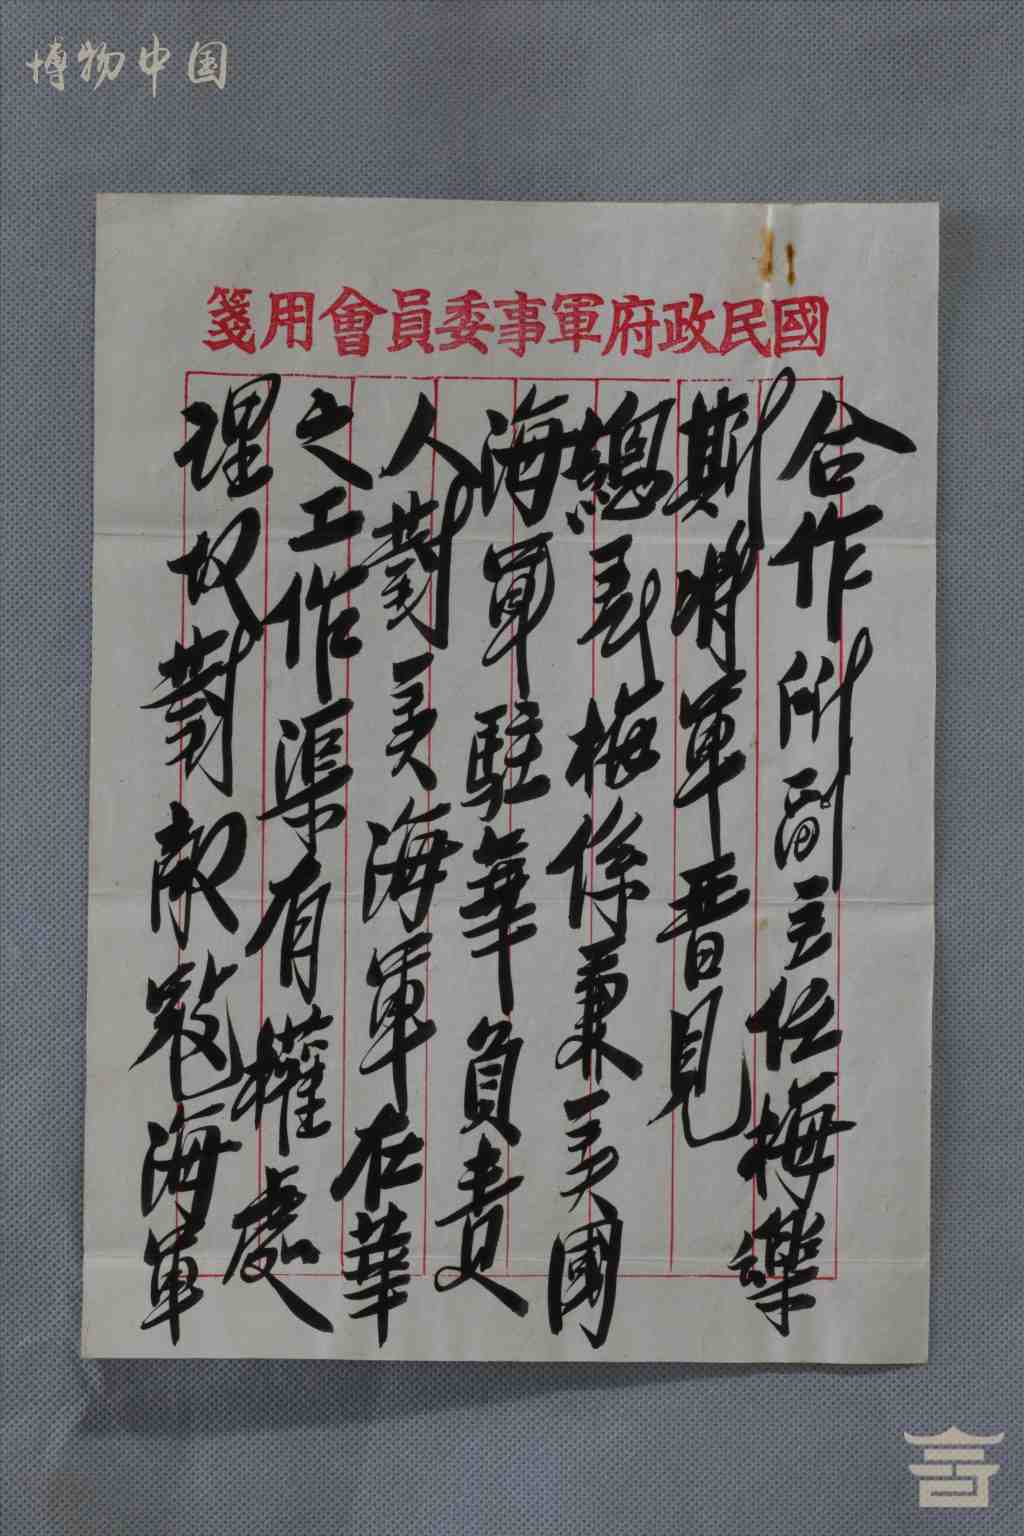 博物中国
國民政府軍事委員會用箋
合作所副主任梅樂
斯將軍晋見
總長梅係兼美國
海軍駐華負責
人對美海軍在華
之工作渠有權處
理故對敵寇海軍